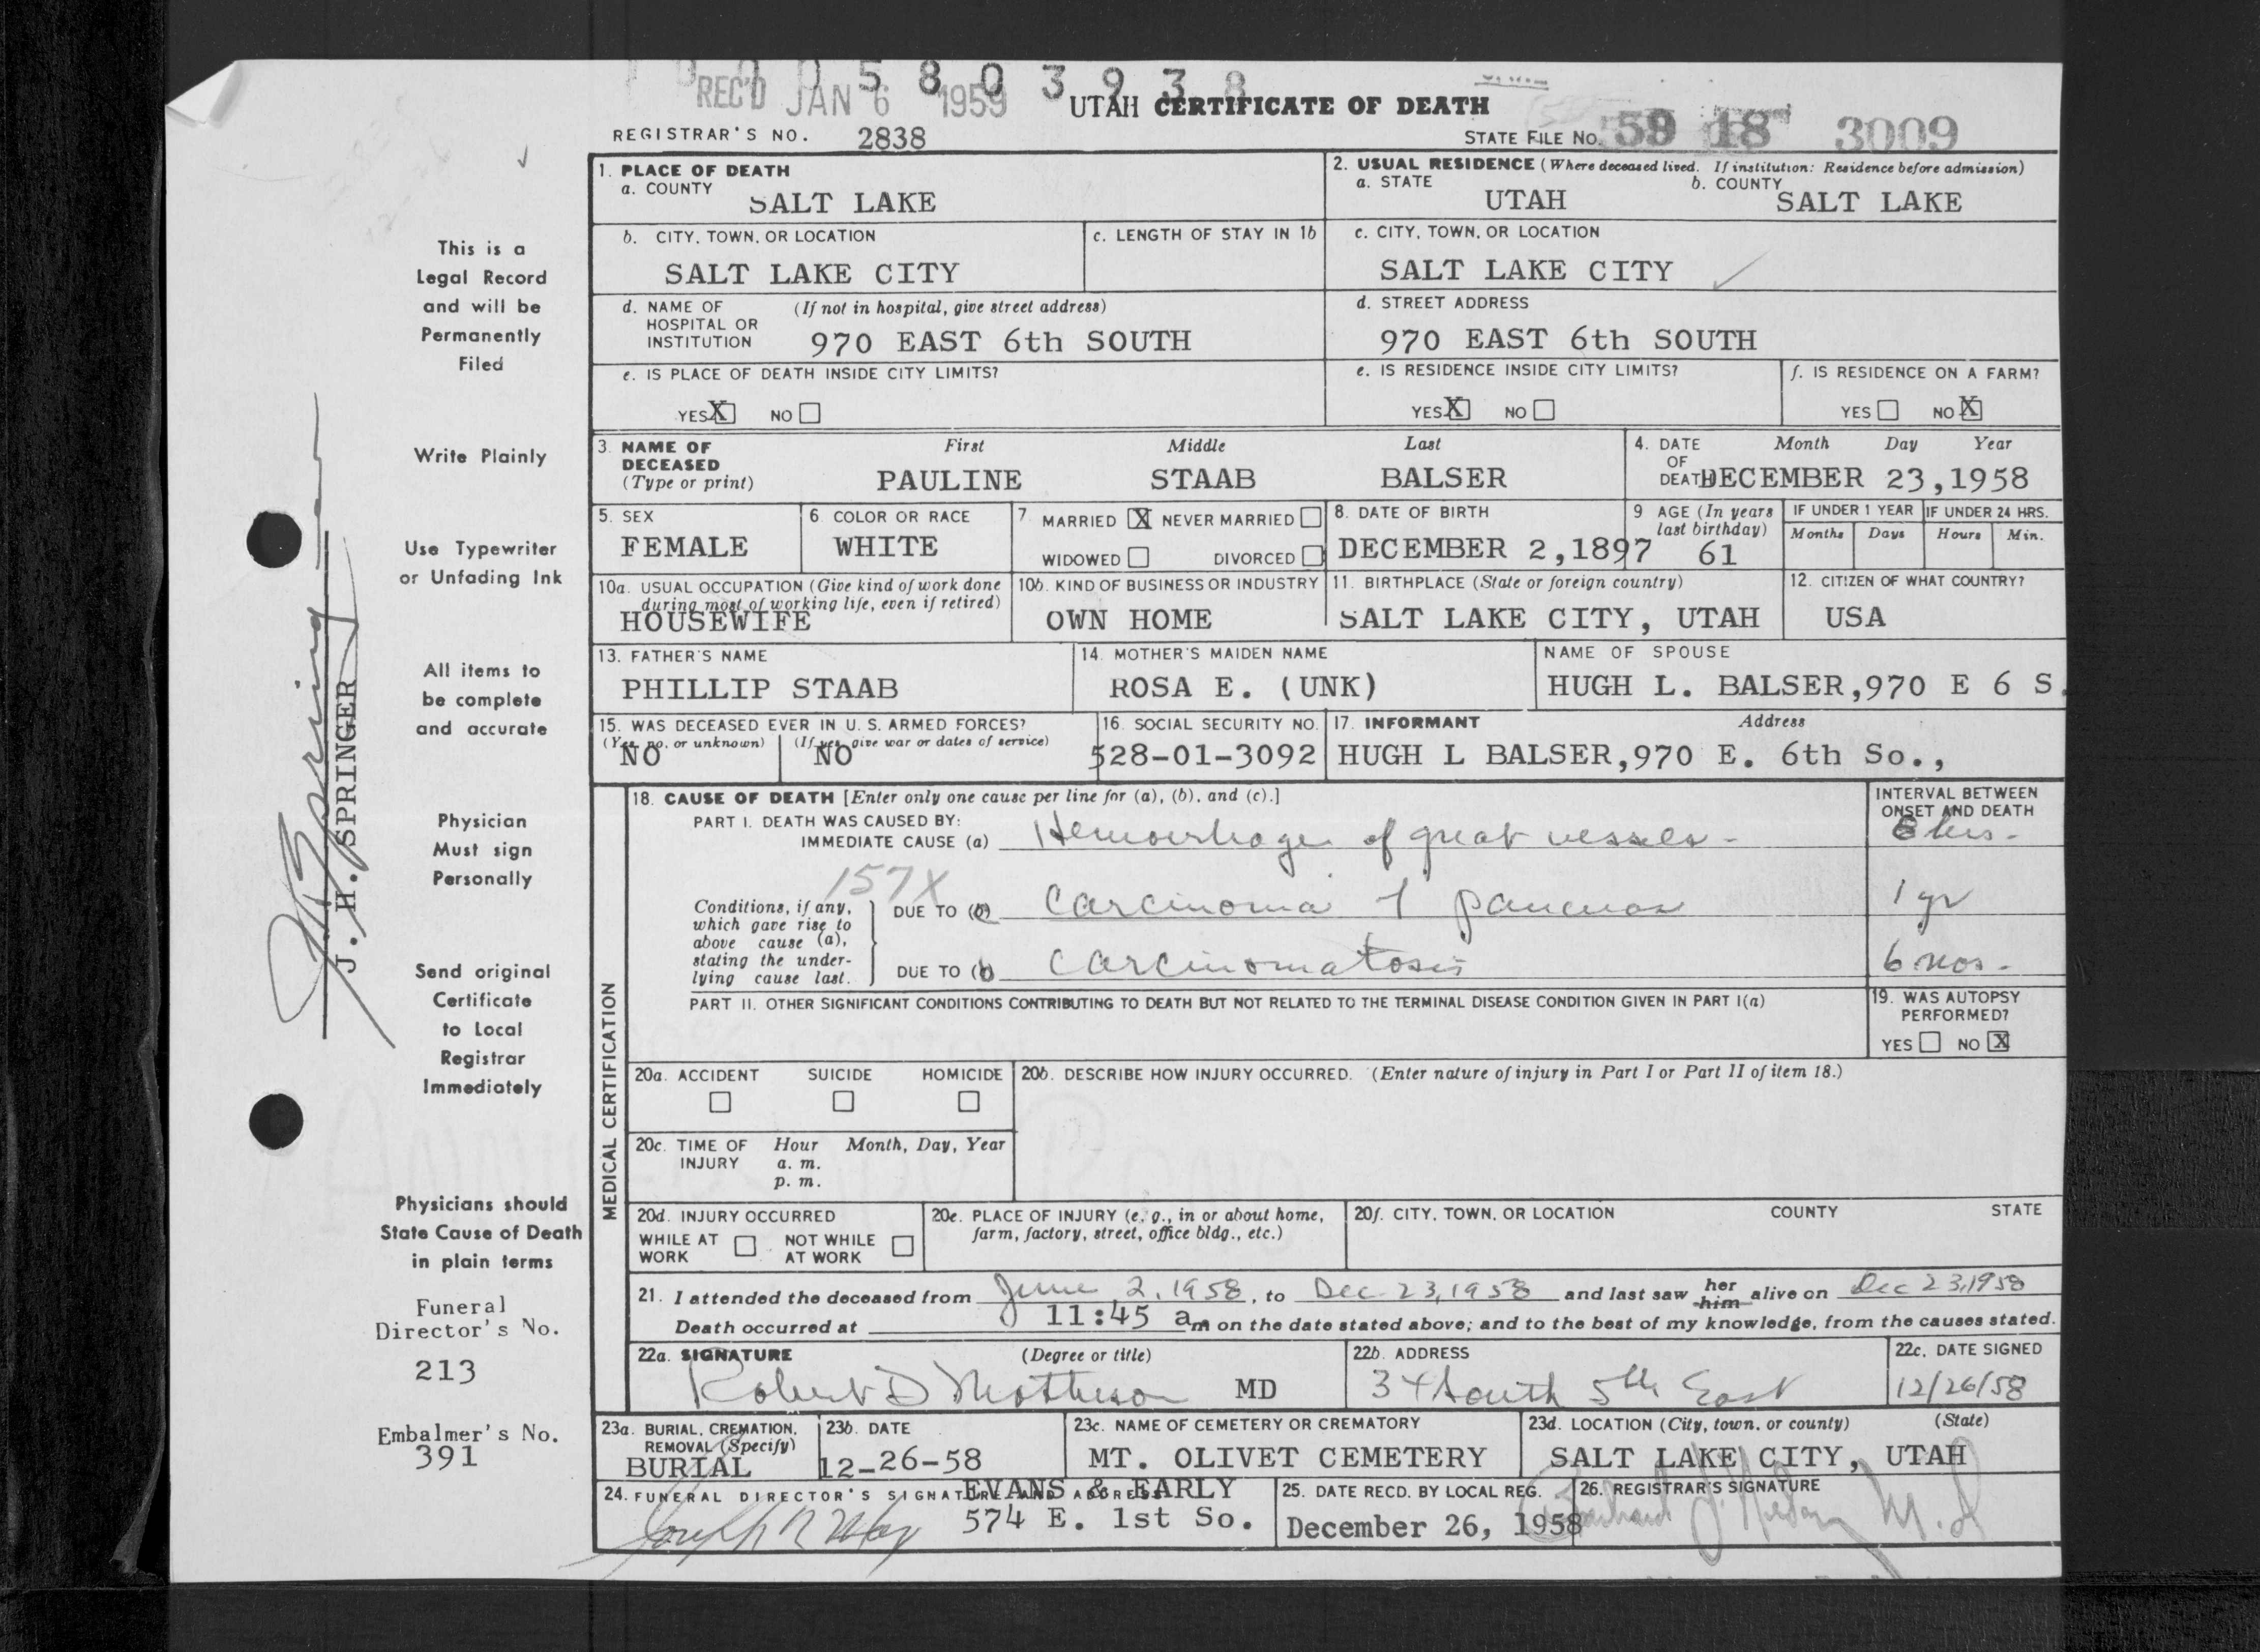 REC'D JAN 6 1959
5 8 0 3 9 3 8
UTAH CERTIFICATE OF DEATH
REGISTRAR'S NO. 2838
STATE FILE No. 59 18 3009
1. PLACE OF DEATH
a. COUNTY
SALT LAKE
2. USUAL RESIDENCE (Where deceased lived. If institution: Residence before admission)
a. STATE b. COUNTY
UTAH SALT LAKE
b. CITY, TOWN, OR LOCATION
SALT LAKE CITY
c. LENGTH OF STAY IN 1b
c. CITY, TOWN, OR LOCATION
SALT LAKE CITY
d. NAME OF HOSPITAL OR INSTITUTION (If not in hospital, give street address)
970 EAST 6th SOUTH
d. STREET ADDRESS
970 EAST 6th SOUTH
e. IS PLACE OF DEATH INSIDE CITY LIMITS?
YES X NO
e. IS RESIDENCE INSIDE CITY LIMITS?
YES X NO
f. IS RESIDENCE ON A FARM?
YES NO X
3. NAME OF DECEASED (Type or print)
First Middle Last
PAULINE STAAB BALSER
4. DATE OF DEATH Month Day Year
DECEMBER 23,1958
5. SEX
FEMALE
6. COLOR OR RACE
WHITE
7. MARRIED X NEVER MARRIED
WIDOWED DIVORCED
8. DATE OF BIRTH
DECEMBER 2,1897
9 AGE (In years last birthday)
61
IF UNDER 1 YEAR IF UNDER 24 HRS.
Months Days Hours Min.
10a. USUAL OCCUPATION (Give kind of work done during most of working life, even if retired)
HOUSEWIFE
10b. KIND OF BUSINESS OR INDUSTRY
OWN HOME
11. BIRTHPLACE (State or foreign country)
SALT LAKE CITY, UTAH
12. CITIZEN OF WHAT COUNTRY?
USA
13. FATHER'S NAME
PHILLIP STAAB
14. MOTHER'S MAIDEN NAME
ROSA E. (UNK)
NAME OF SPOUSE
HUGH L. BALSER,970 E 6 S.
15. WAS DECEASED EVER IN U. S. ARMED FORCES?
(Yes, no, or unknown) (If yes, give war or dates of service)
NO NO
16. SOCIAL SECURITY NO.
528-01-3092
17. INFORMANT Address
HUGH L BALSER,970 E. 6th So.,
MEDICAL CERTIFICATION
18. CAUSE OF DEATH [Enter only one cause per line for (a), (b), and (c).]
INTERVAL BETWEEN ONSET AND DEATH
PART I. DEATH WAS CAUSED BY:
IMMEDIATE CAUSE (a) Hemorrhage of great vessels - 8 hrs.
157X
Conditions, if any, which gave rise to above cause (a), stating the underlying cause last.
DUE TO (c) Carcinoma of pancreas 1 yr
DUE TO (b) Carcinomatosis 6 mos.
PART II. OTHER SIGNIFICANT CONDITIONS CONTRIBUTING TO DEATH BUT NOT RELATED TO THE TERMINAL DISEASE CONDITION GIVEN IN PART I(a)
19. WAS AUTOPSY PERFORMED?
YES NO X
20a. ACCIDENT SUICIDE HOMICIDE
20b. DESCRIBE HOW INJURY OCCURRED. (Enter nature of injury in Part I or Part II of item 18.)
20c. TIME OF INJURY Hour Month, Day, Year
a. m.
p. m.
20d. INJURY OCCURRED
WHILE AT WORK NOT WHILE AT WORK
20e. PLACE OF INJURY (e. g., in or about home, farm, factory, street, office bldg., etc.)
20f. CITY, TOWN, OR LOCATION COUNTY STATE
21. I attended the deceased from June 2, 1958, to Dec 23, 1958 and last saw her him alive on Dec 23, 1958
Death occurred at 11:45 a m on the date stated above; and to the best of my knowledge, from the causes stated.
22a. SIGNATURE (Degree or title)
Robert D Mattheson MD
22b. ADDRESS
34 South 5th East
22c. DATE SIGNED
12/26/58
23a. BURIAL, CREMATION, REMOVAL (Specify)
BURIAL
23b. DATE
12-26-58
23c. NAME OF CEMETERY OR CREMATORY
MT. OLIVET CEMETERY
23d. LOCATION (City, town, or county) (State)
SALT LAKE CITY, UTAH
24. FUNERAL DIRECTOR'S SIGNATURE AND ADDRESS
EVANS & EARLY
574 E. 1st So.
25. DATE RECD. BY LOCAL REG.
December 26, 1958
26. REGISTRAR'S SIGNATURE
M.D
This is a
Legal Record
and will be
Permanently
Filed
Write Plainly
Use Typewriter
or Unfading Ink
All items to
be complete
and accurate
Physician
Must sign
Personally
Send original
Certificate
to Local
Registrar
Immediately
Physicians should
State Cause of Death
in plain terms
Funeral
Director's No.
213
Embalmer's No.
391
J. H. Springer
J. H. SPRINGER